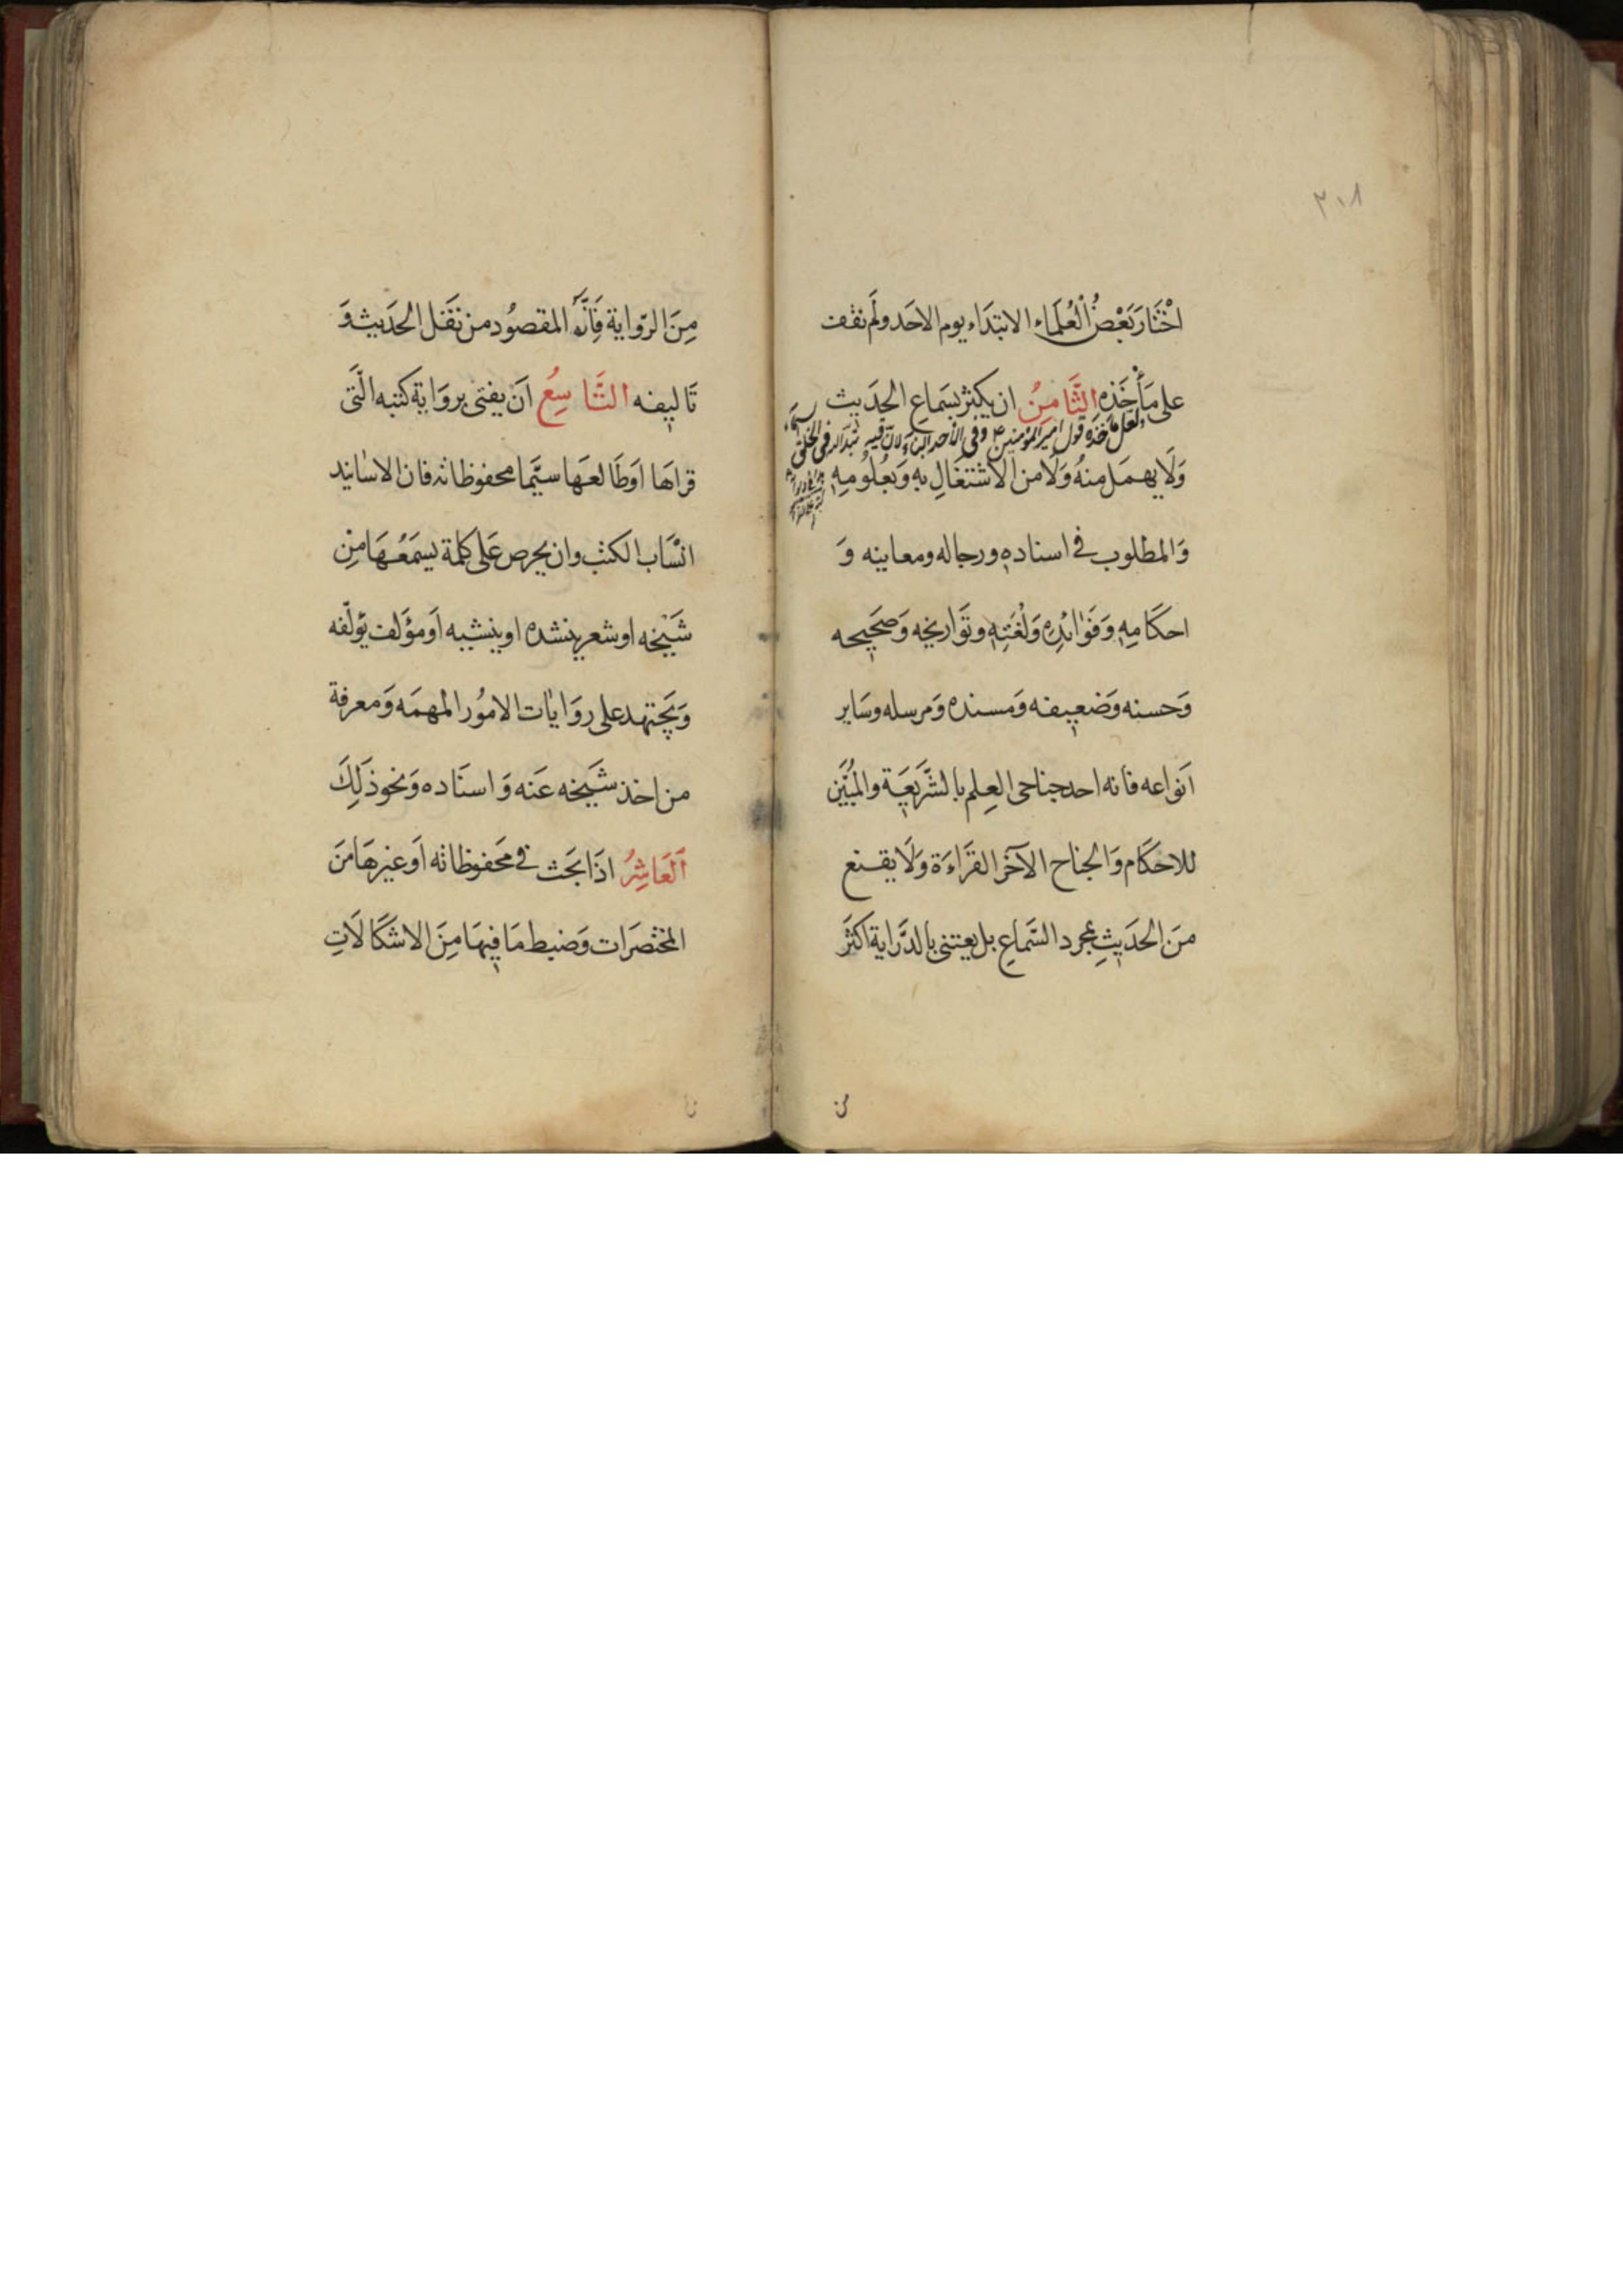 ٣١٨
اخْتَارَ بَعْضُ الْعُلَمَاء الابتَدَاء يوم الاحَد ولَم نقف
على مَأْخَذِه الثَّامِنُ ان يكثر بسَماع الحدَيث
ولعل مأخذه قول امير المؤمنين ع وفى الأحد البناء لان فيه تبدّا الله فى الخلق
وَلَا يهمَل منهُ وَلَا من الاشتغَالِ بهِ وَبعُلُومِهِ
وَالمطلوب فى اسناده ورجاله ومعاينه وَ
احكَامِهِ وَفَوَائدِهِ وَلُغَتِهِ وتَواريخه وَصحَيحه
وَحسنه وَضعيفه وَمسنده وَمرسله وسَاير
اَنواعه فانه احد جناحى العِلم بالشَّرَيعَة والمُبَيّن
للاحكَام وَالجناح الآخَر القرَاءَة وَلَا يقنع
منَ الحدَيثِ بمجرد السَّماعِ بل يعتنى بالدَّراية اكثَر
مِنَ الرّواية فَاِنَّهُ المقصُود من نَقَل الحدَيث وَ
تَاليفه التَّاسِعُ اَن يفتى بروَاية كتبه الَّتى
قراهَا اوَطَالعَها سيَّما محفوظاته فان الاسَانيد
انسَاب الكتب وان يحرص عَلى كلمة يسمَعُهَا مِن
شَيخه او شعر ينشده او ينشيه اَو مؤلف يؤلّفه
وَيجتهد على روَايَات الامُور المهمَه وَمعرفة
من اخذ شَيخه عَنه وَاسنَاده وَنحو ذَلِكَ
اَلعَاشِرُ اذَا بحَث فى مَحفوظاته اَو غيرهَا منَ
المختصَرَات وَضبط مَا فيهَا مِنَ الاشكَالَاتِ